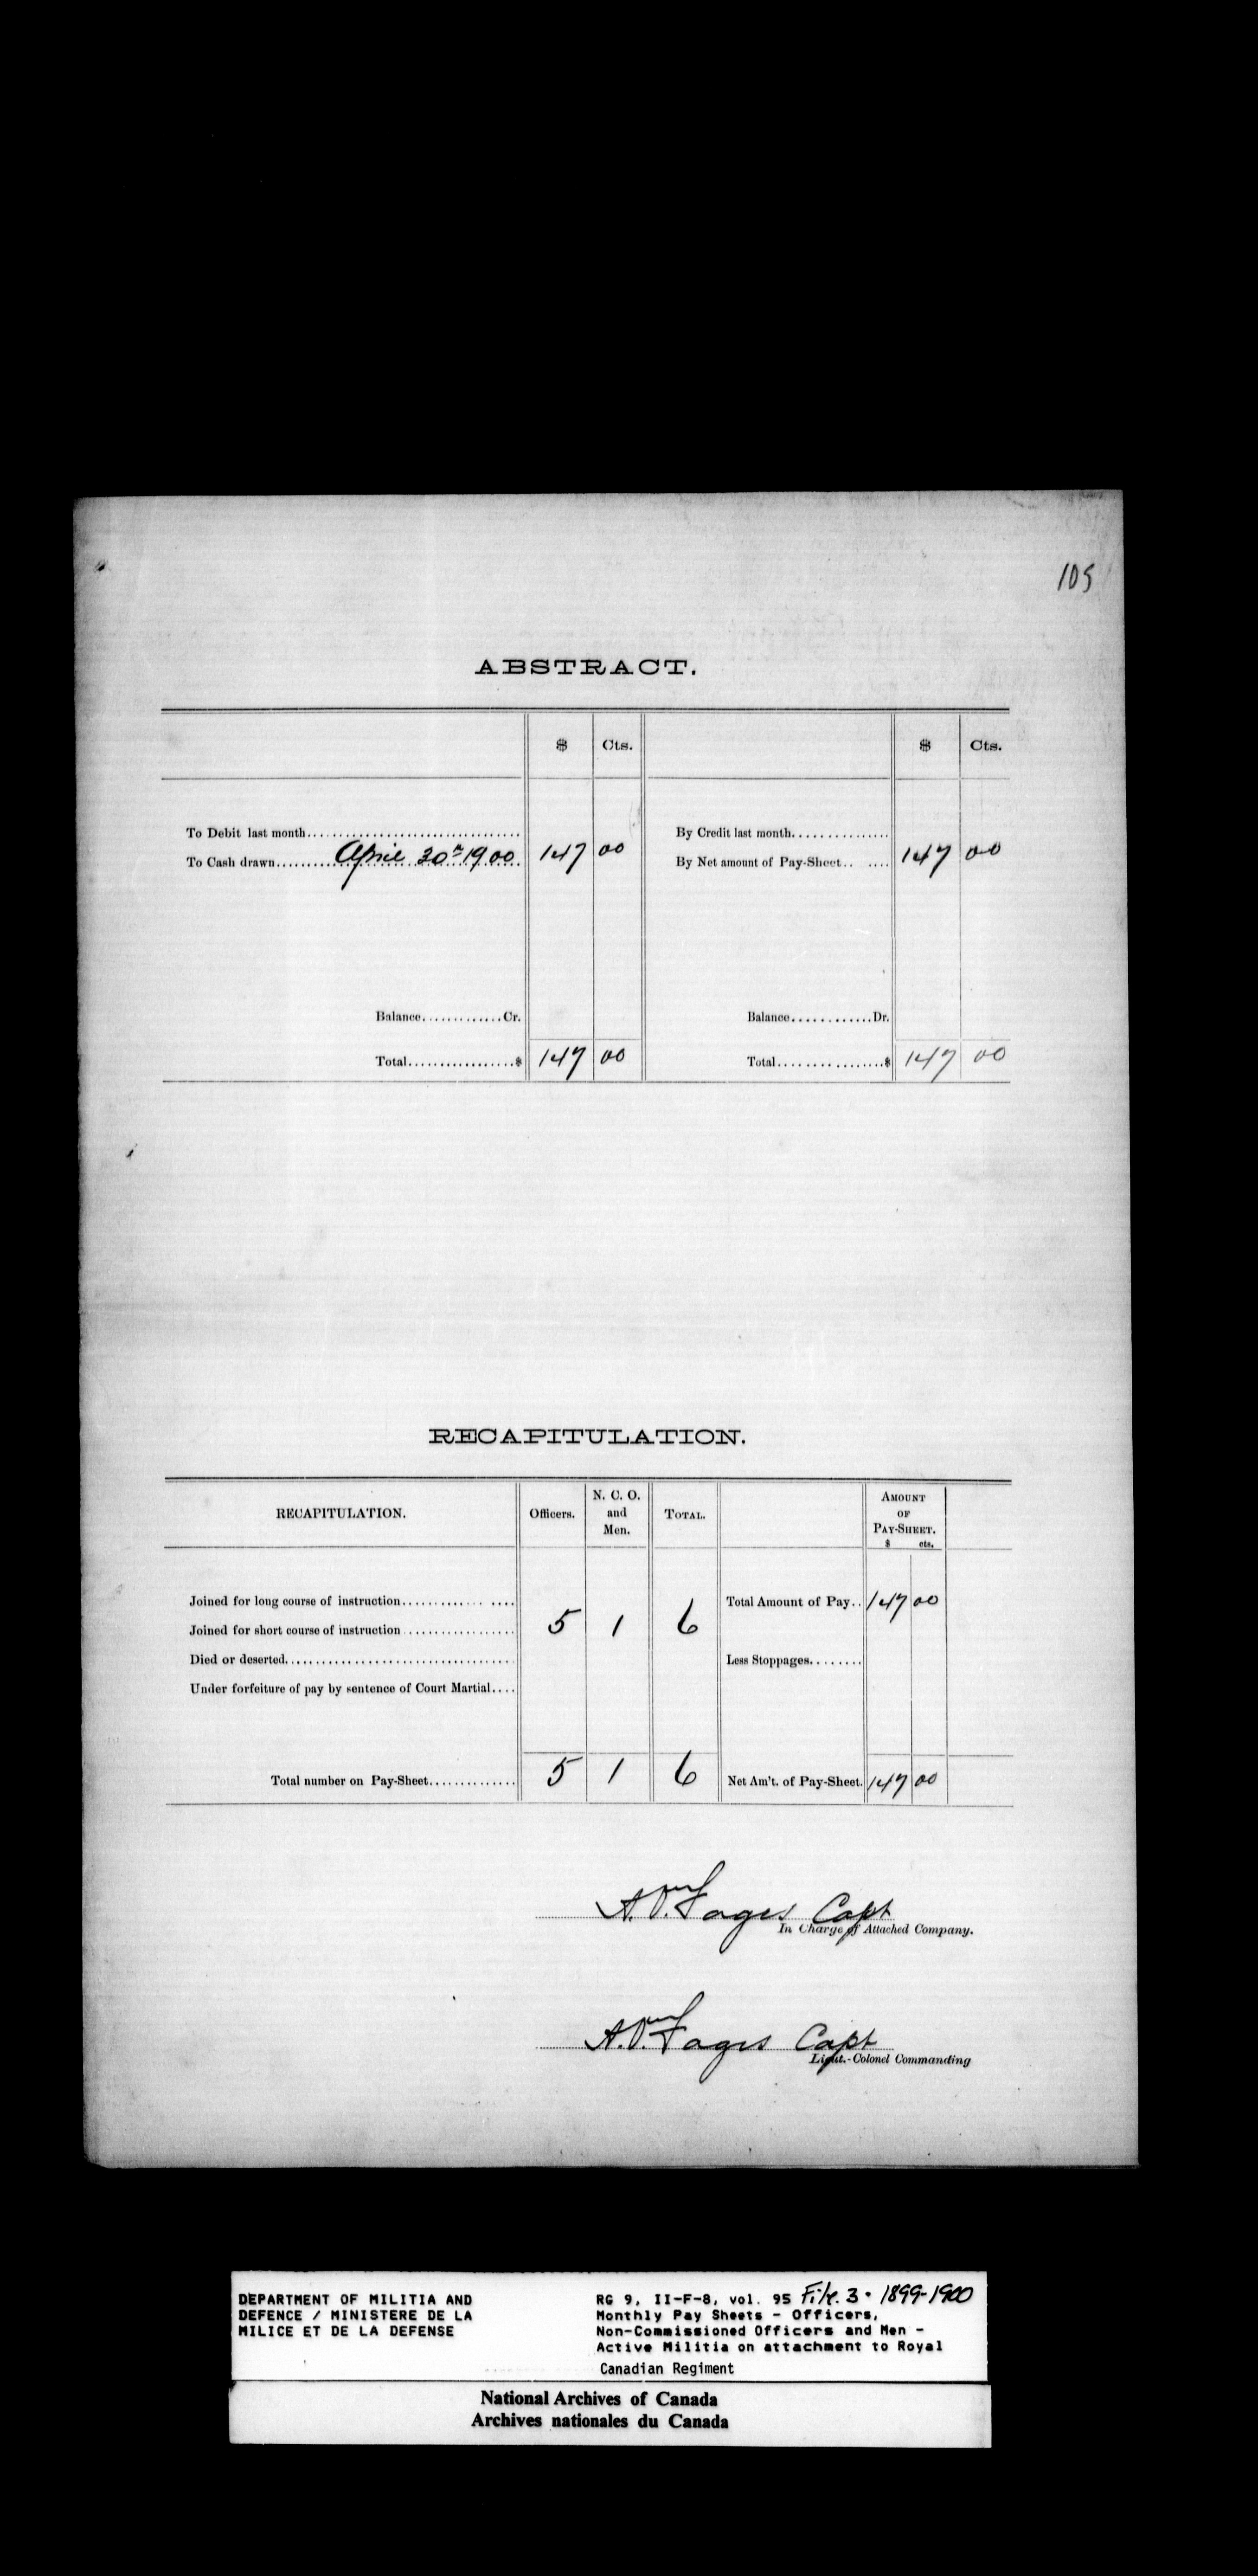 105
ABSTRACT.
$ Cts. $ Cts.
To Debit last month By Credit last month
To Cash drawn April 30th 1900 147 00 By Net amount of Pay-Sheet 147 00
Balance Cr. Balance Dr.
Total $ 147 00 Total $ 147 00
RECAPITULATION.
RECAPITULATION. Officers. N. C. O. and Men. TOTAL. AMOUNT OF PAY-SHEET. $ cts.
Joined for long course of instruction Total Amount of Pay 147 00
Joined for short course of instruction 5 1 6
Died or deserted Less Stoppages
Under forfeiture of pay by sentence of Court Martial
Total number on Pay-Sheet 5 1 6 Net Am't. of Pay-Sheet. 147 00
Fages Capt
In Charge of Attached Company.
Fages Capt
Lieut.-Colonel Commanding
DEPARTMENT OF MILITIA AND
DEFENCE / MINISTERE DE LA
MILICE ET DE LA DEFENSE
RG 9, II-F-8, vol. 95 File. 3 · 1899-1900
Monthly Pay Sheets - Officers,
Non-Commissioned Officers and Men -
Active Militia on attachment to Royal
Canadian Regiment
National Archives of Canada
Archives nationales du Canada